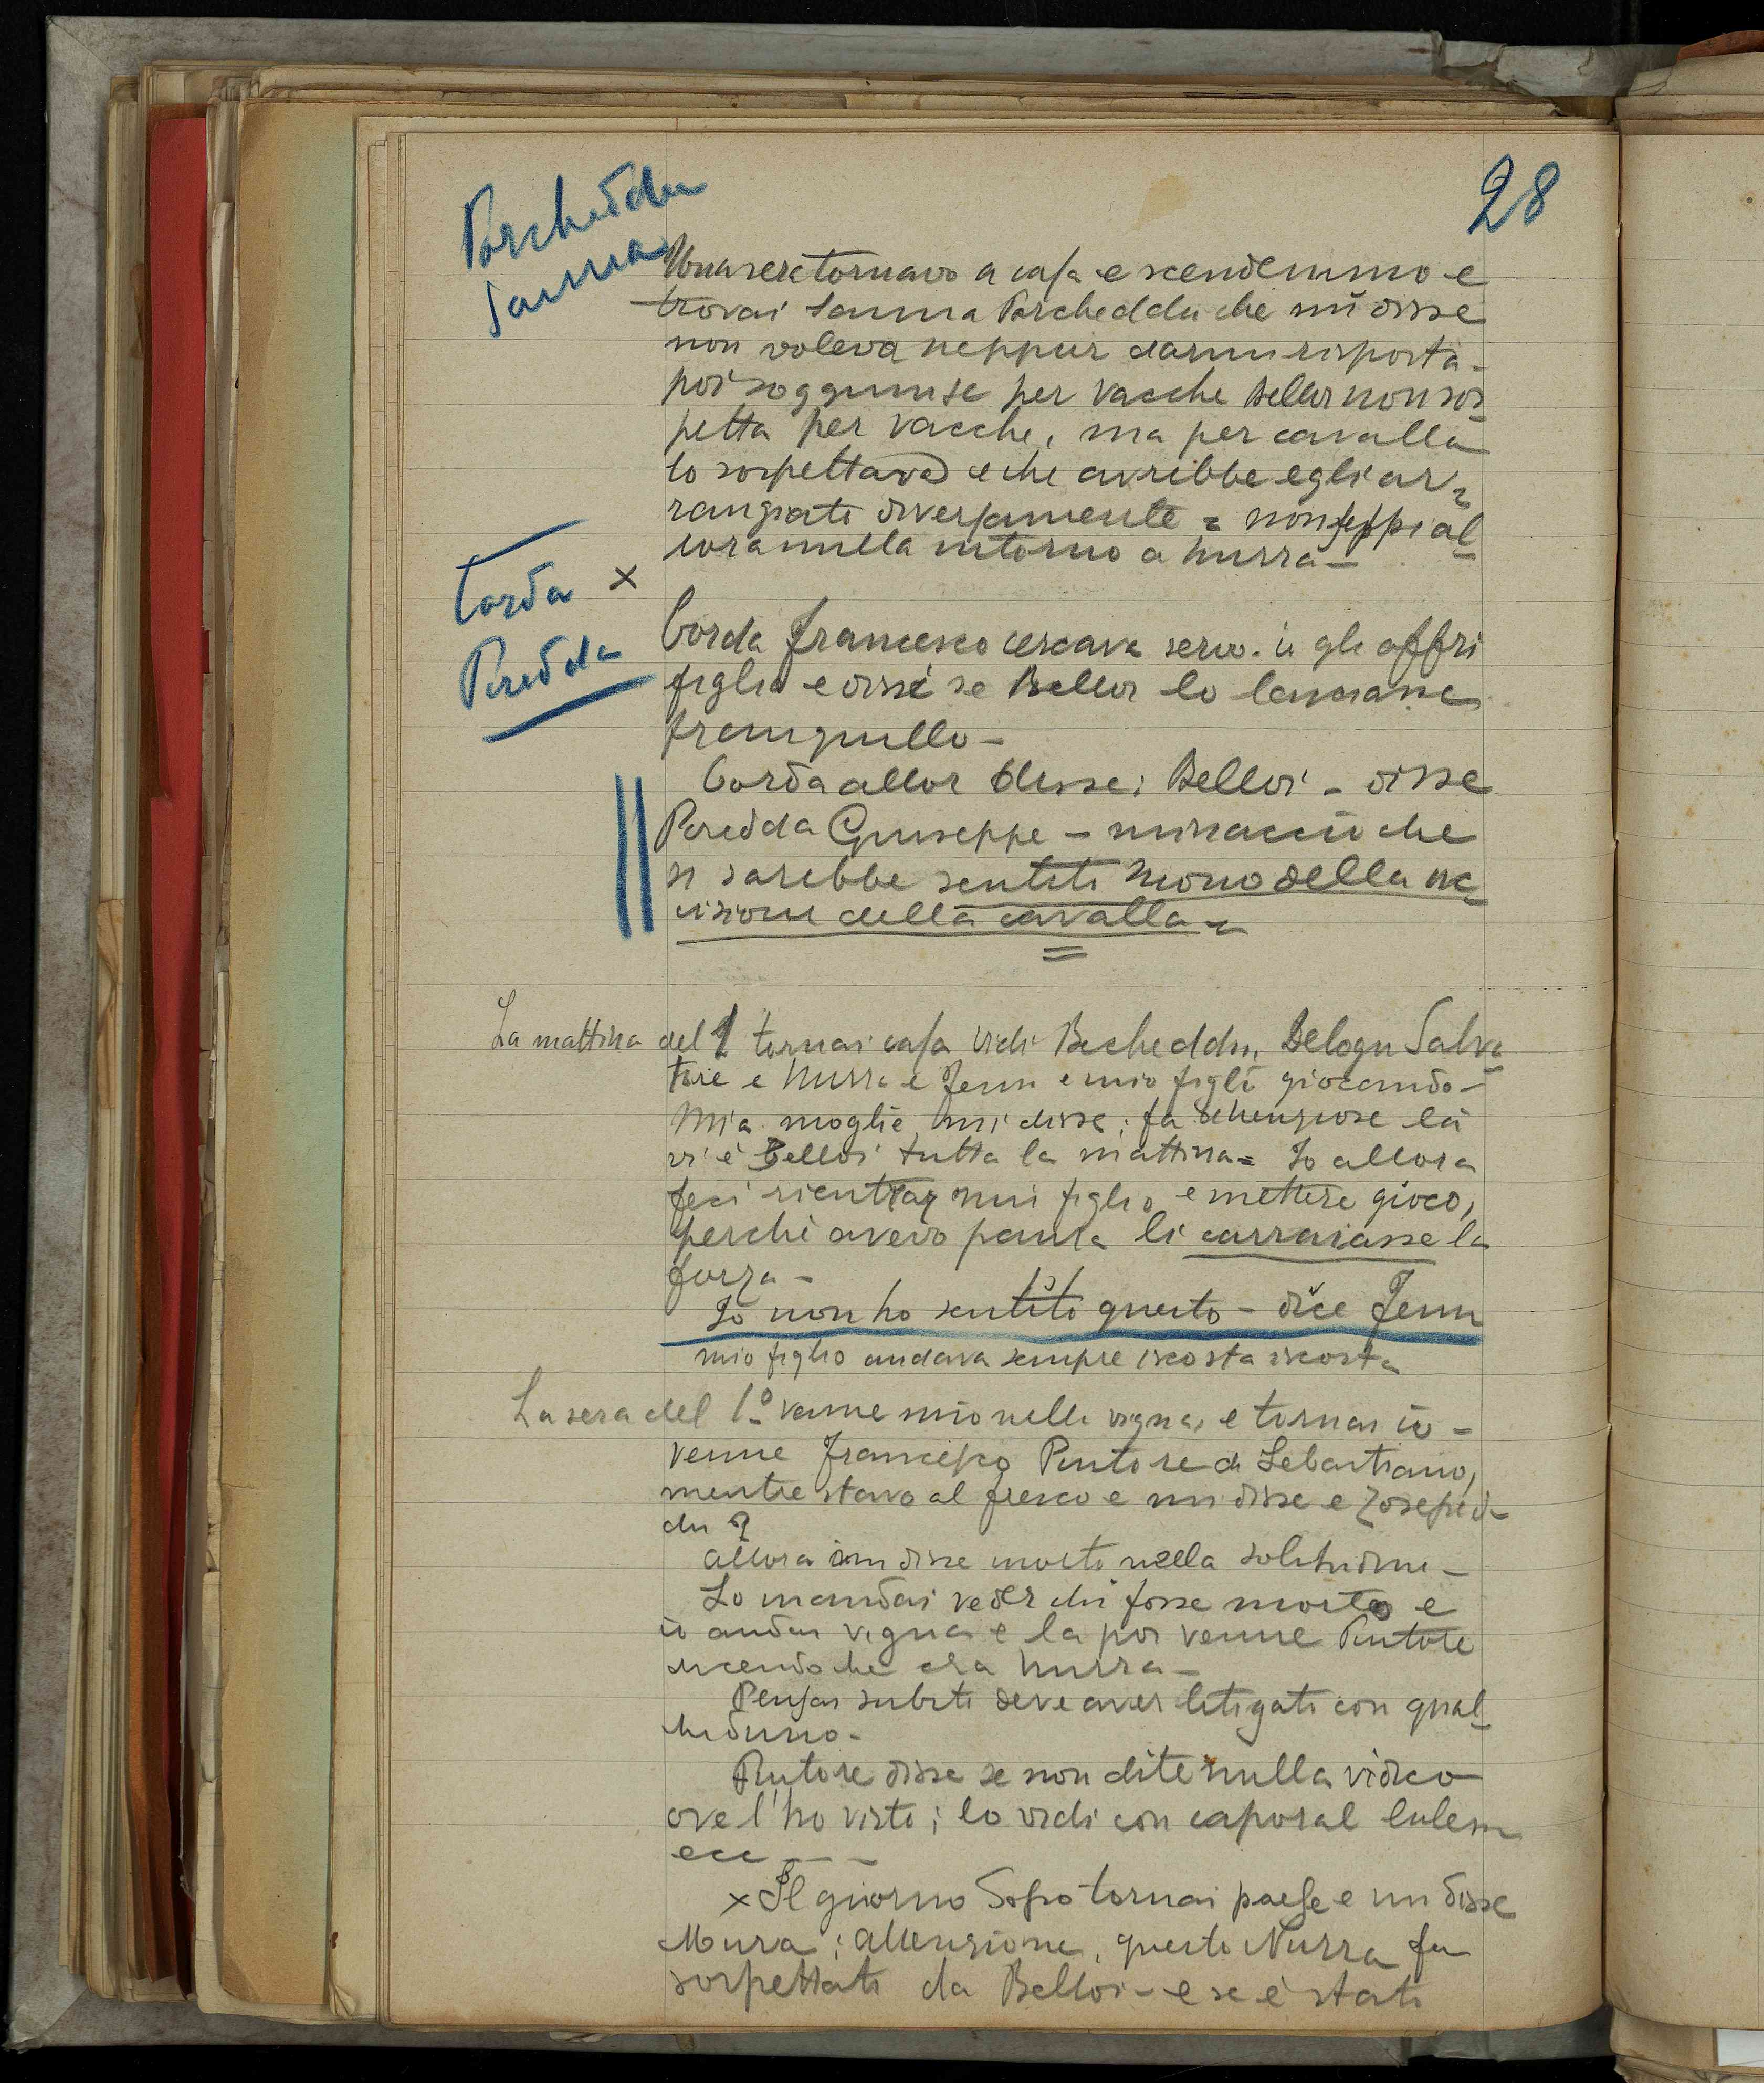 28
Porcheddu
Sanna
Una sera tornavo a casa e scendemmo e
trovai Sanna Porcheddu che mi disse
non voleva neppur darmi risposta -
poi soggiunse per vacche Belloi non sos
petta per vacche, ma per cavalla
lo sospettava e che avrebbe egli ar=
rangiato diversamente = non seppi al
lora nulla intorno a Nurra -
Corda ×
Peredda
Corda Francesco cercava servo. io gli offri
figlio e dissi se Belloi lo lasciasse
tranquillo -
Corda allor disse: Belloi - disse
Peredda Giuseppe - minacciò che
si sarebbe sentito suono della uc
cisione della cavalla -
La mattina del 1 tornai casa vidi Becheddu, Delogu Salva
tore e Nurra e Fenu e mio figlio giocando -
Mia moglie mi disse: fa attenzione là
vi è Belloi tutta la mattina = Io allora
feci rientrar mio figlio e smettere gioco,
perchè avevo paura li
la
forza -
Io non ho sentito questo - dice Fenu
mio figlio andava sempre iscosta iscosta
La sera del 1º venne mio nella vigna, e tornai io -
venne Francesco Pintore di Sebastiano,
mentre stavo al fresco e mi disse e Zoseped
du?
allora mi disse morto nella solitudine -
Lo mandai veder chi fosse morto e
io andai vigna e la poi venne Pintore
dicendo che era Nurra -
Pensai subito deve aver litigato con qual
cheduno -
Pintore disse se non dite nulla vi dico
ove l'ho visto; lo vidi con caporal
ecc - -
× Il giorno dopo tornai paese e mi disse
Mura: attenzione, questo Nurra fu
sospettato da Belloi - e se è stato